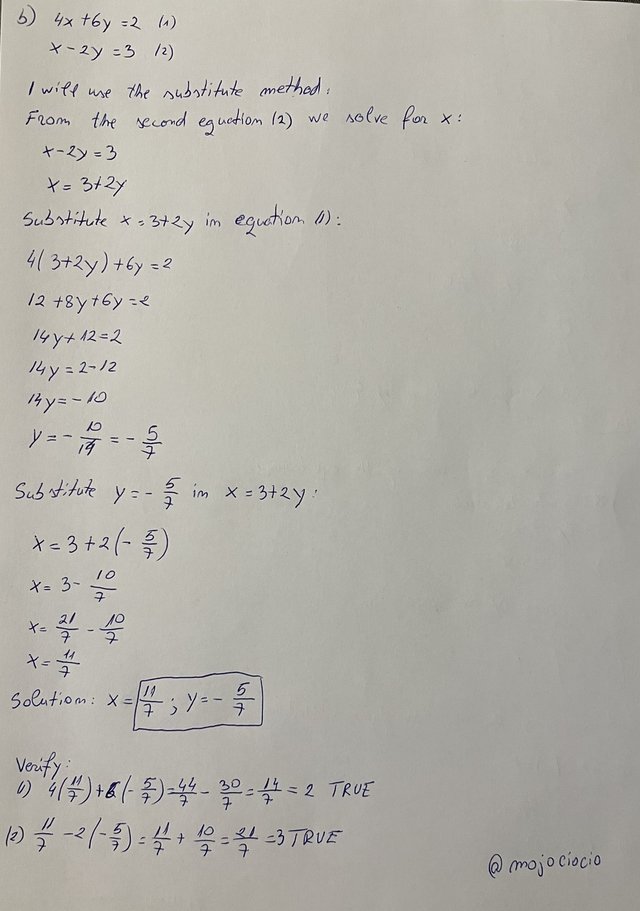 b) 4x+6y=2 (1)
x-2y=3 (2)
I will use the substitute method:
From the second equation (2) we solve for x:
x-2y=3
x=3+2y
Substitute x=3+2y in equation (1):
4(3+2y)+6y=2
12+8y+6y=2
14y+12=2
14y=2-12
14y=-10
y=-10/14=-5/7
Substitute y=-5/7 in x=3+2y:
x=3+2(-5/7)
x=3-10/7
x=21/7-10/7
x=11/7
Solution: x=11/7; y=-5/7
Verify:
1) 4(11/7)+6(-5/7)=44/7-30/7=14/7=2 TRUE
(2) 11/7-2(-5/7)=11/7+10/7=21/7=3 TRUE
@mojociocio